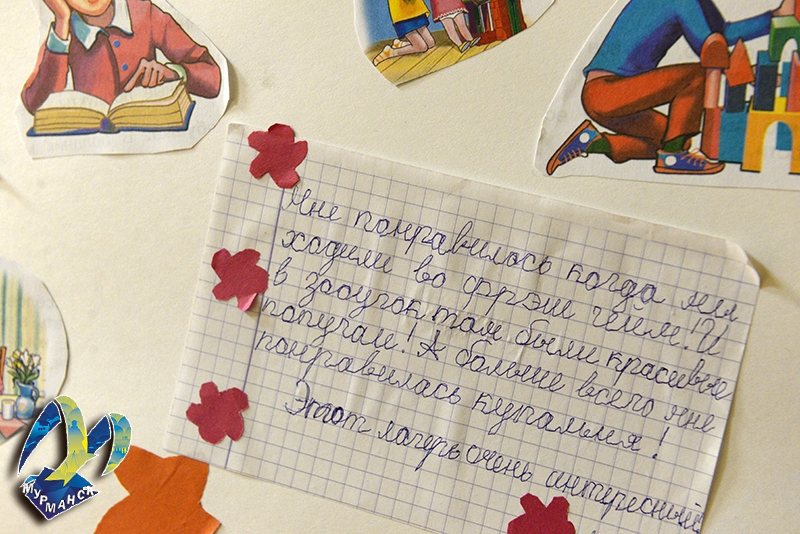 Мне понравилось когда мы
ходили во фрэш гейм! И
в зооуголк там были красивые
попугаи! А больше всего мне
понравилась купальня!
Этот лагерь очень интересный
МУРМАНСК